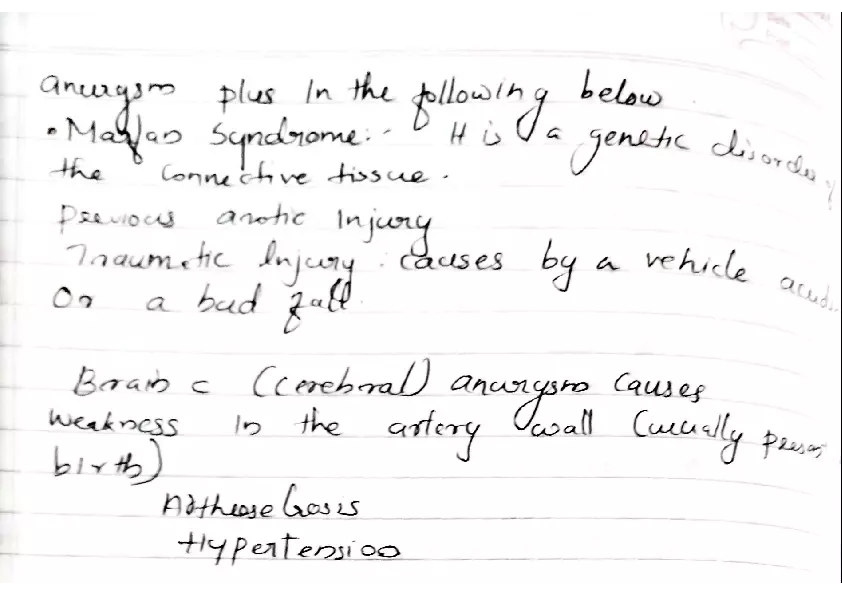 aneurysm plus In the following below
• Marfan Syndrome:- It is a genetic disorder of
the Connective tissue.
Previous arotic Injury
Traumatic Injury. causes by a vehicle
Or a bad fall.
Brain c (cerebral) aneurysm Causes
Weakness in the artery wall (usually
birth)
Hypertension